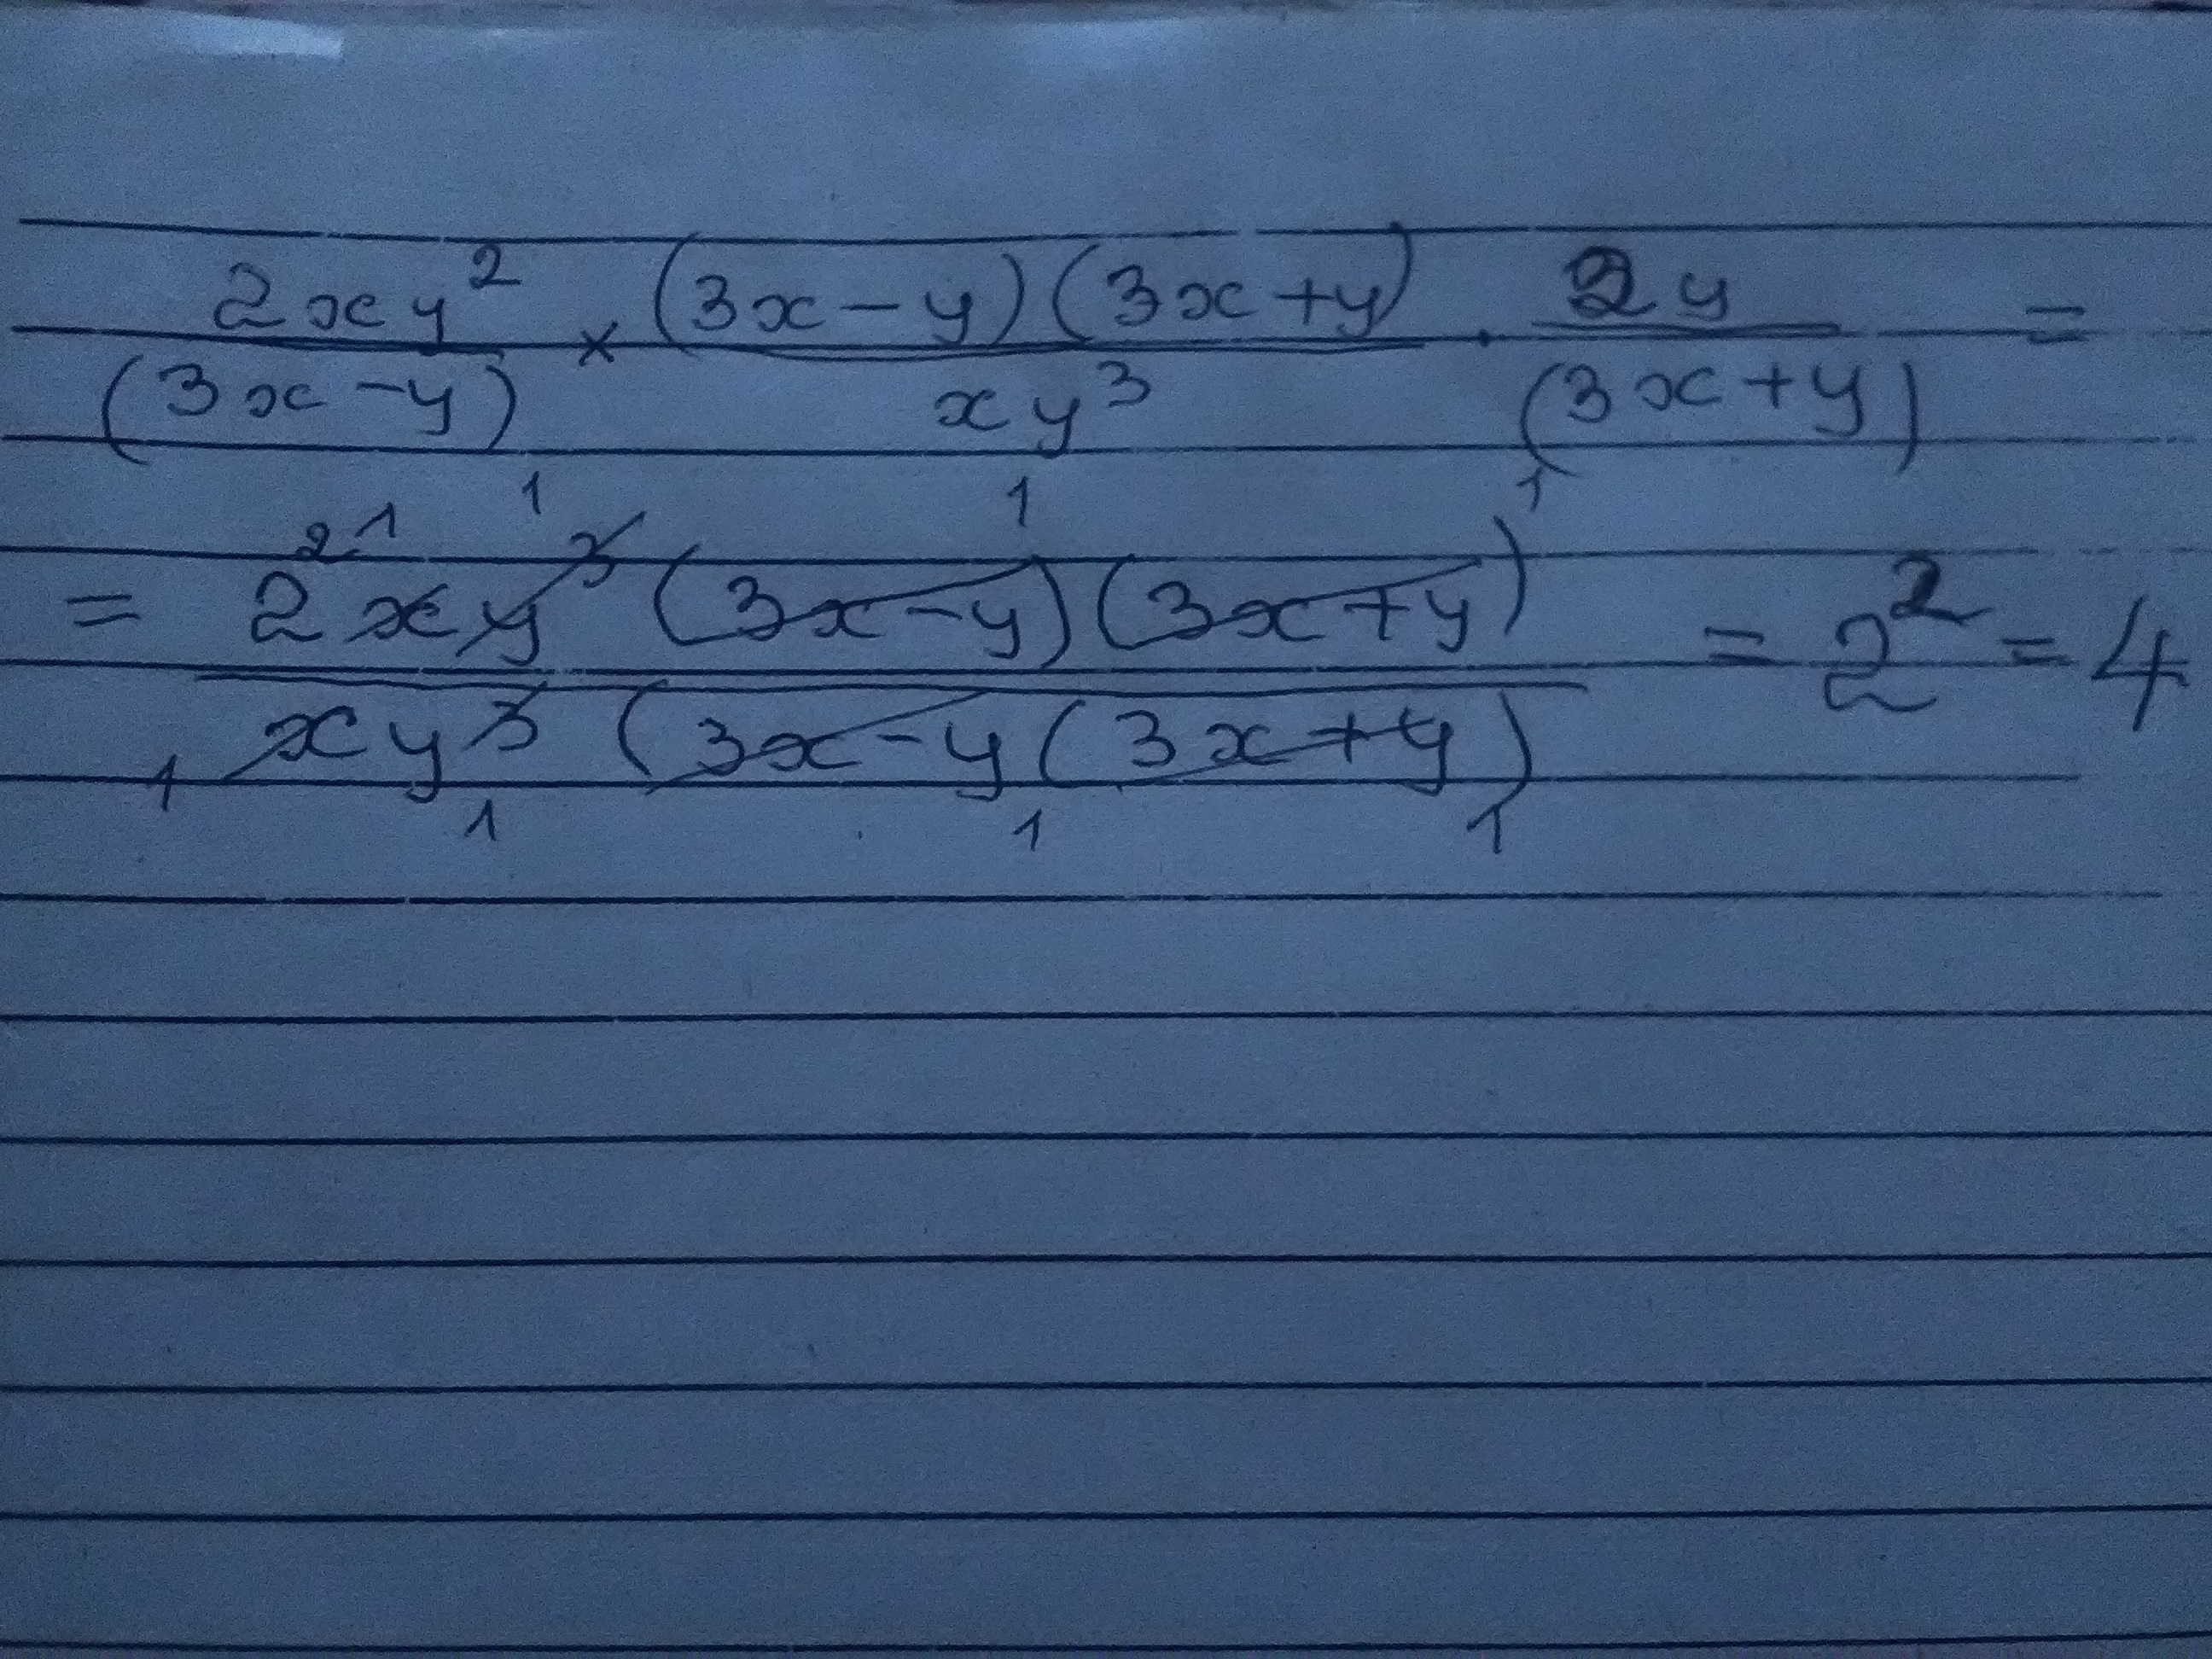 2xy² / (3x-y) × (3x-y)(3x+y) / xy³ · 2y / (3x+y) =
= 2²xy³ (3x-y)(3x+y) / xy³ (3x-y(3x+y) = 2² = 4